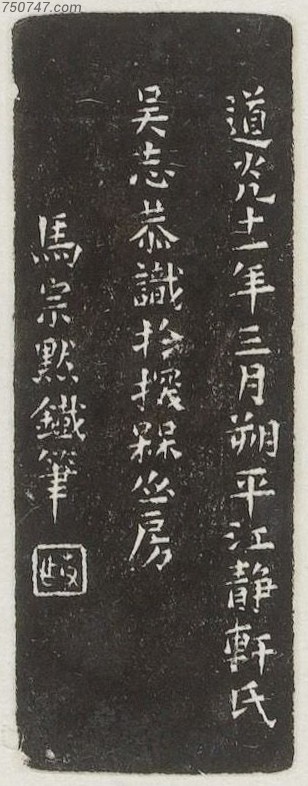 750747.com
道光十一年三月朔平江靜軒氏
吴志恭識於掇
山房
馬宗默鐵筆